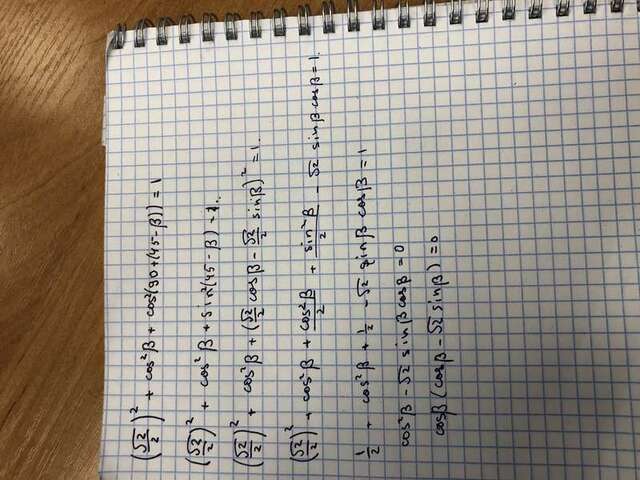 (√2/2)² + cos²β + cos²(90+(45-β)) = 1
(√2/2)² + cos²β + sin²(45-β) = 1.
(√2/2)² + cos²β + (√2/2 cosβ - √2/2 sinβ)² = 1.
(√2/2)² + cos²β + cos²β/2 + sin²β/2 - √2 sinβ cosβ = 1.
1/2 + cos²β + 1/2 - √2 sinβ cosβ = 1
cos²β - √2 sinβ cosβ = 0
cosβ (cosβ - √2 sinβ) = 0